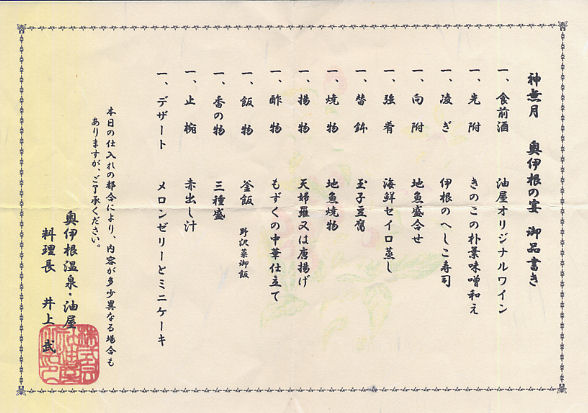 神無月 奥伊根の宴 御品書き
一、食前酒 油屋オリジナルワイン
一、先附 きのこの朴葉味噌和え
一、凌ぎ 伊根のへしこ寿司
一、向附 地魚盛合せ
一、強肴 海鮮セイロ蒸し
一、替鉢 玉子豆腐
一、焼物 地魚焼物
一、揚物 天婦羅又は唐揚げ
一、酢物 もずくの中華仕立て
一、飯物 釜飯 野沢菜御飯
一、香の物 三種盛
一、止椀 赤出し汁
一、デザート メロンゼリーとミニケーキ
本日の仕入れの都合により、内容が多少異なる場合も
ありますが、ご了承ください。
奥伊根温泉・油屋
料理長 井上 武